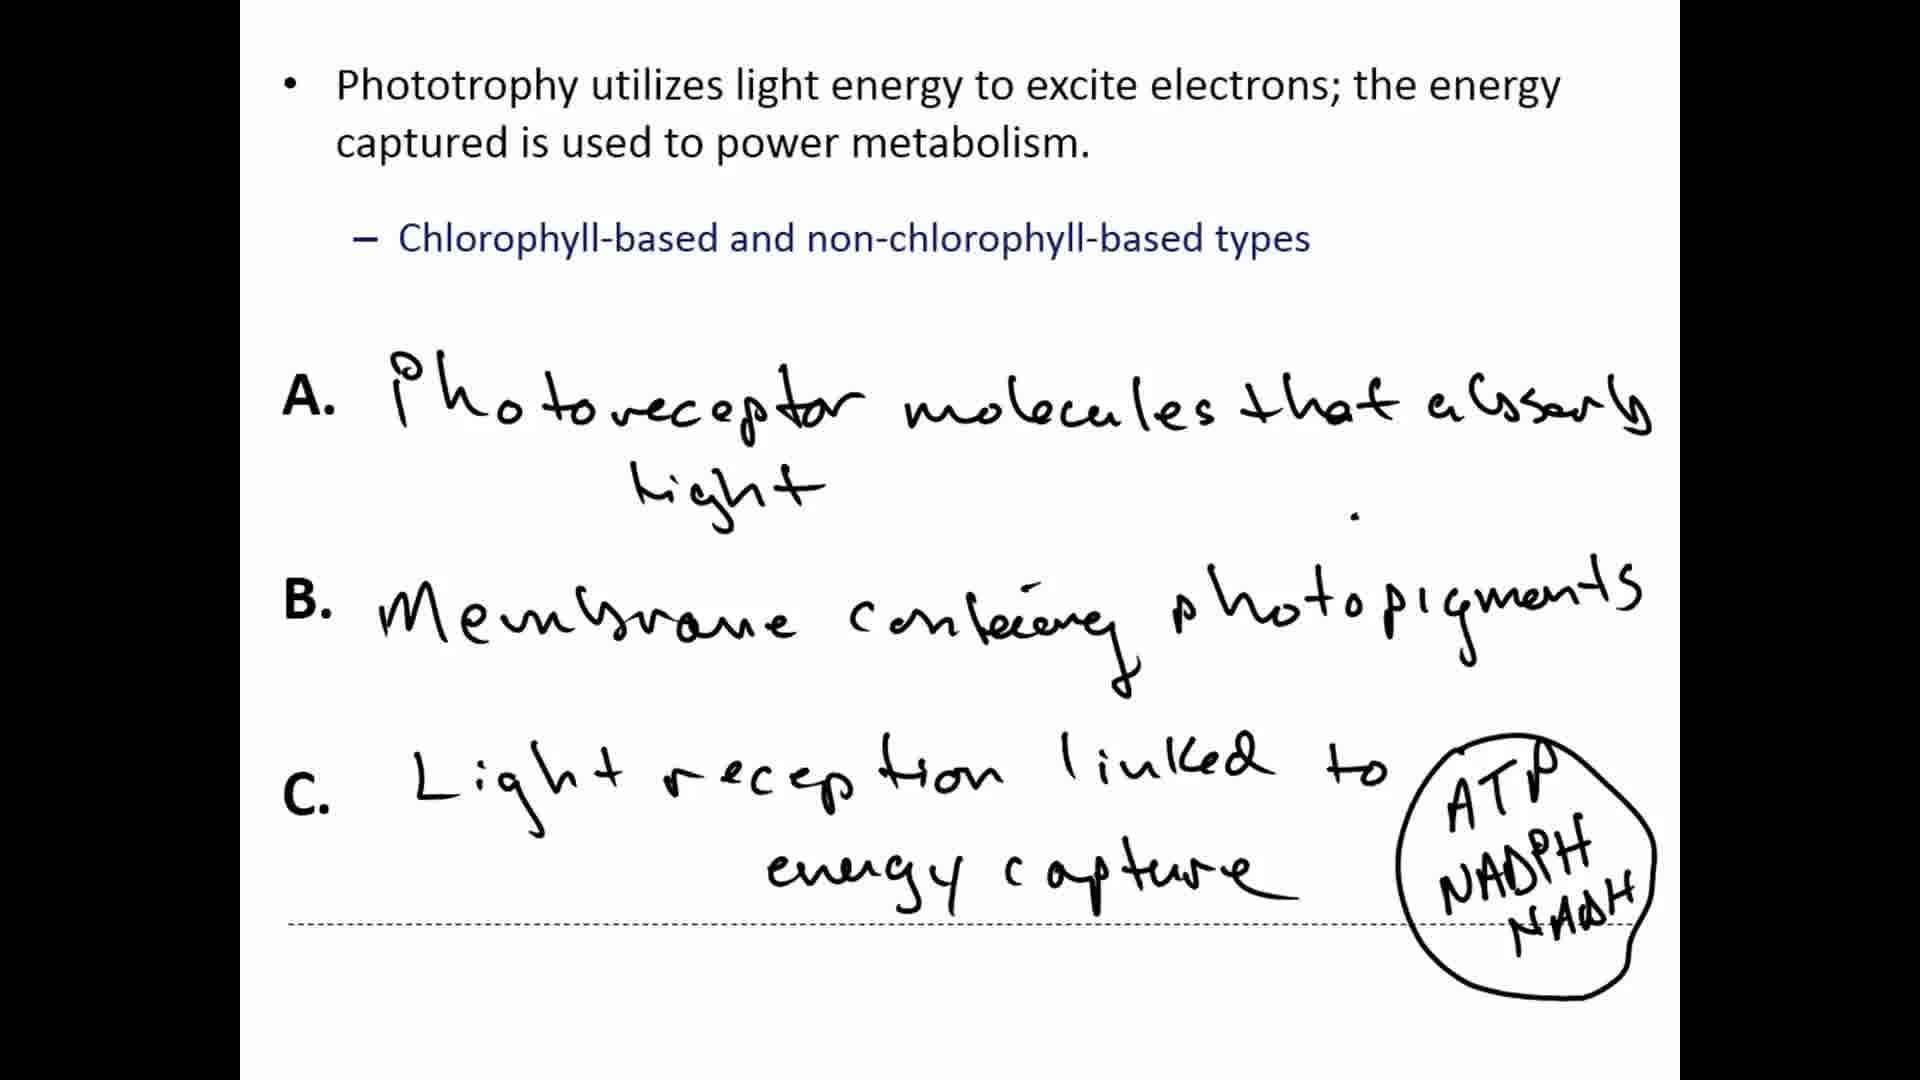 • Phototrophy utilizes light energy to excite electrons; the energy
captured is used to power metabolism.
– Chlorophyll-based and non-chlorophyll-based types
A. Photoreceptor molecules that absorb
light
B. Membrane containing photopigments
C. Light reception linked to
energy capture
ATP
NADPH
NADH